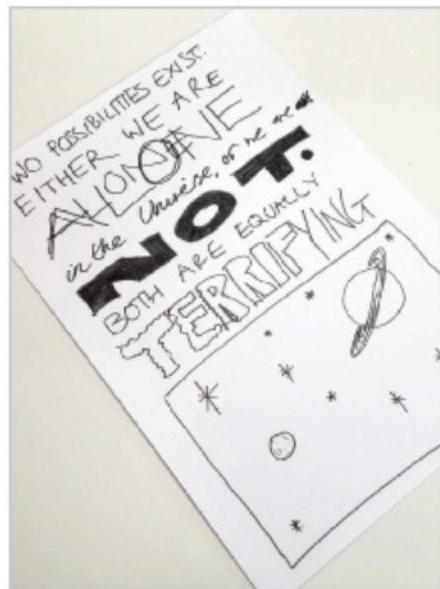 WO POSSIBILITIES EXIST.
EITHER WE ARE
ALONE
in the Universe, or we are
NOT.
BOTH ARE EQUALLY
TERRIFYING